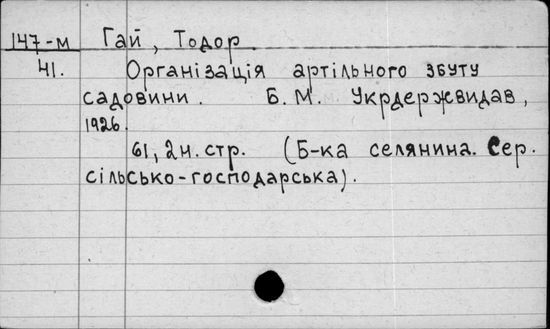 147-м Гай, Тодор.
41. Організація артільного збуту
садовини. Б.М. Укрдержвидав,
1926.
61, 2н. стр. (Б-ка селянина. Сер.
сільсько-господарська).